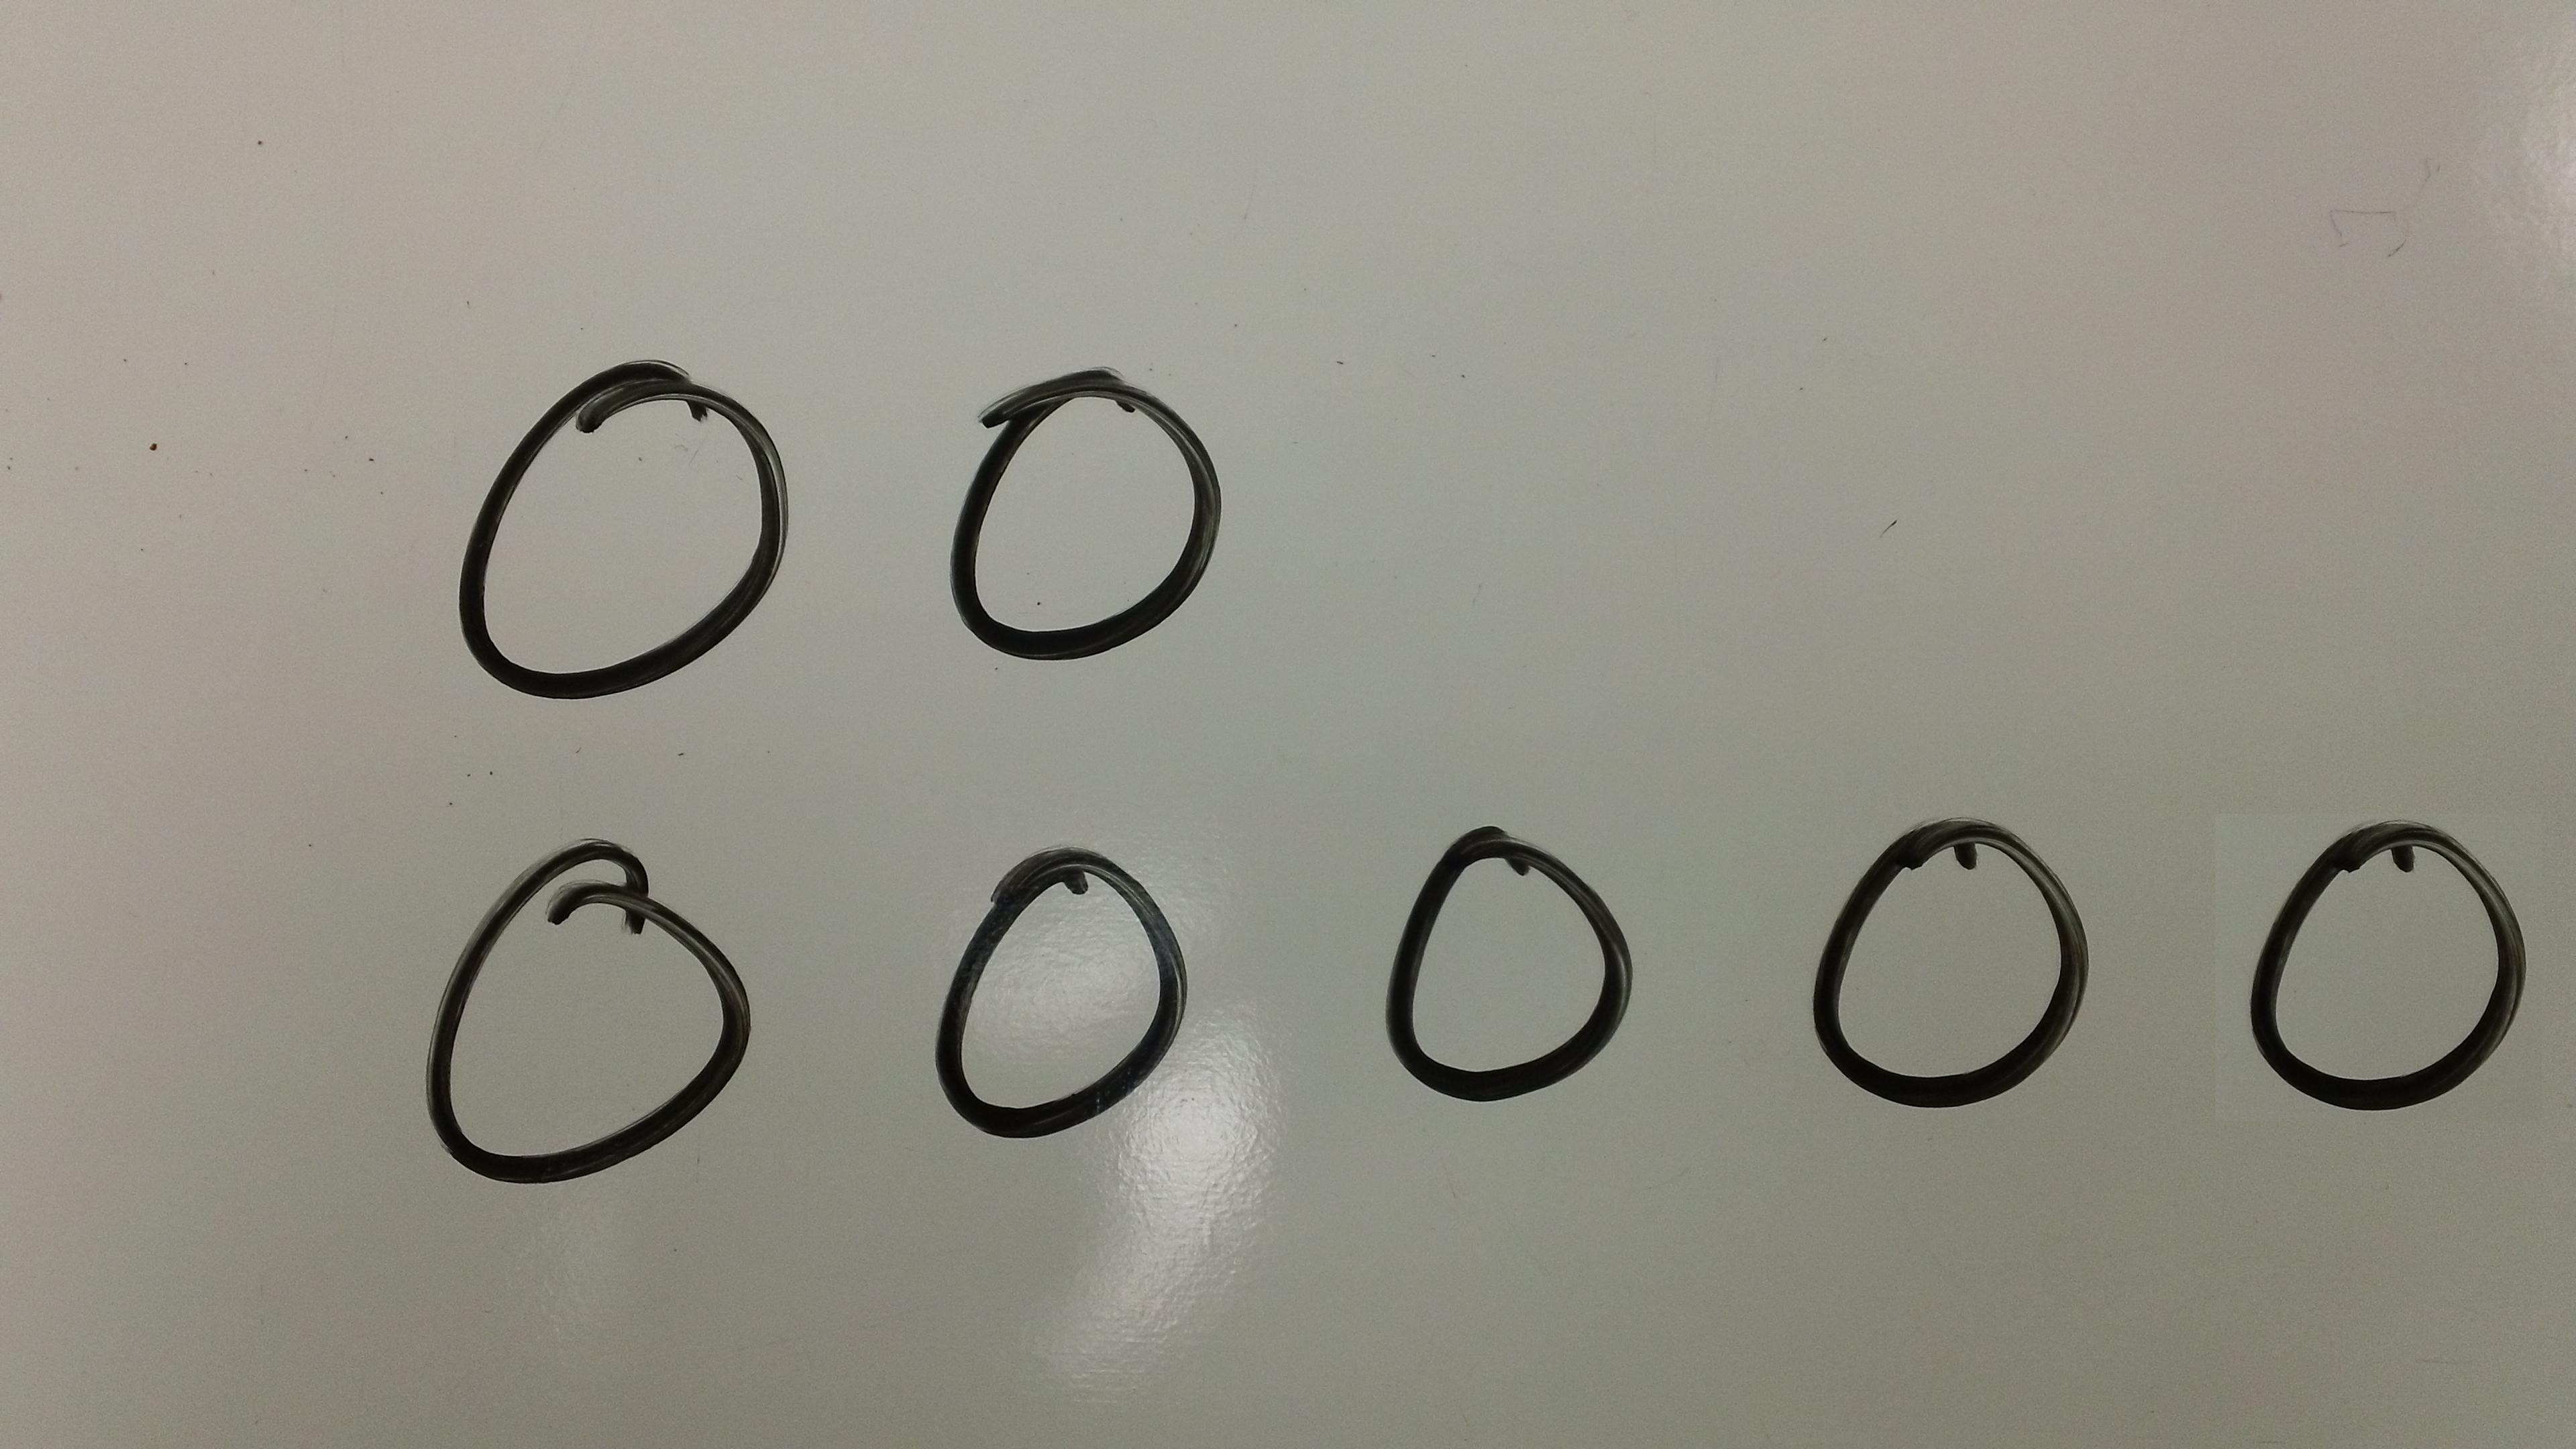 O O
O O O O O